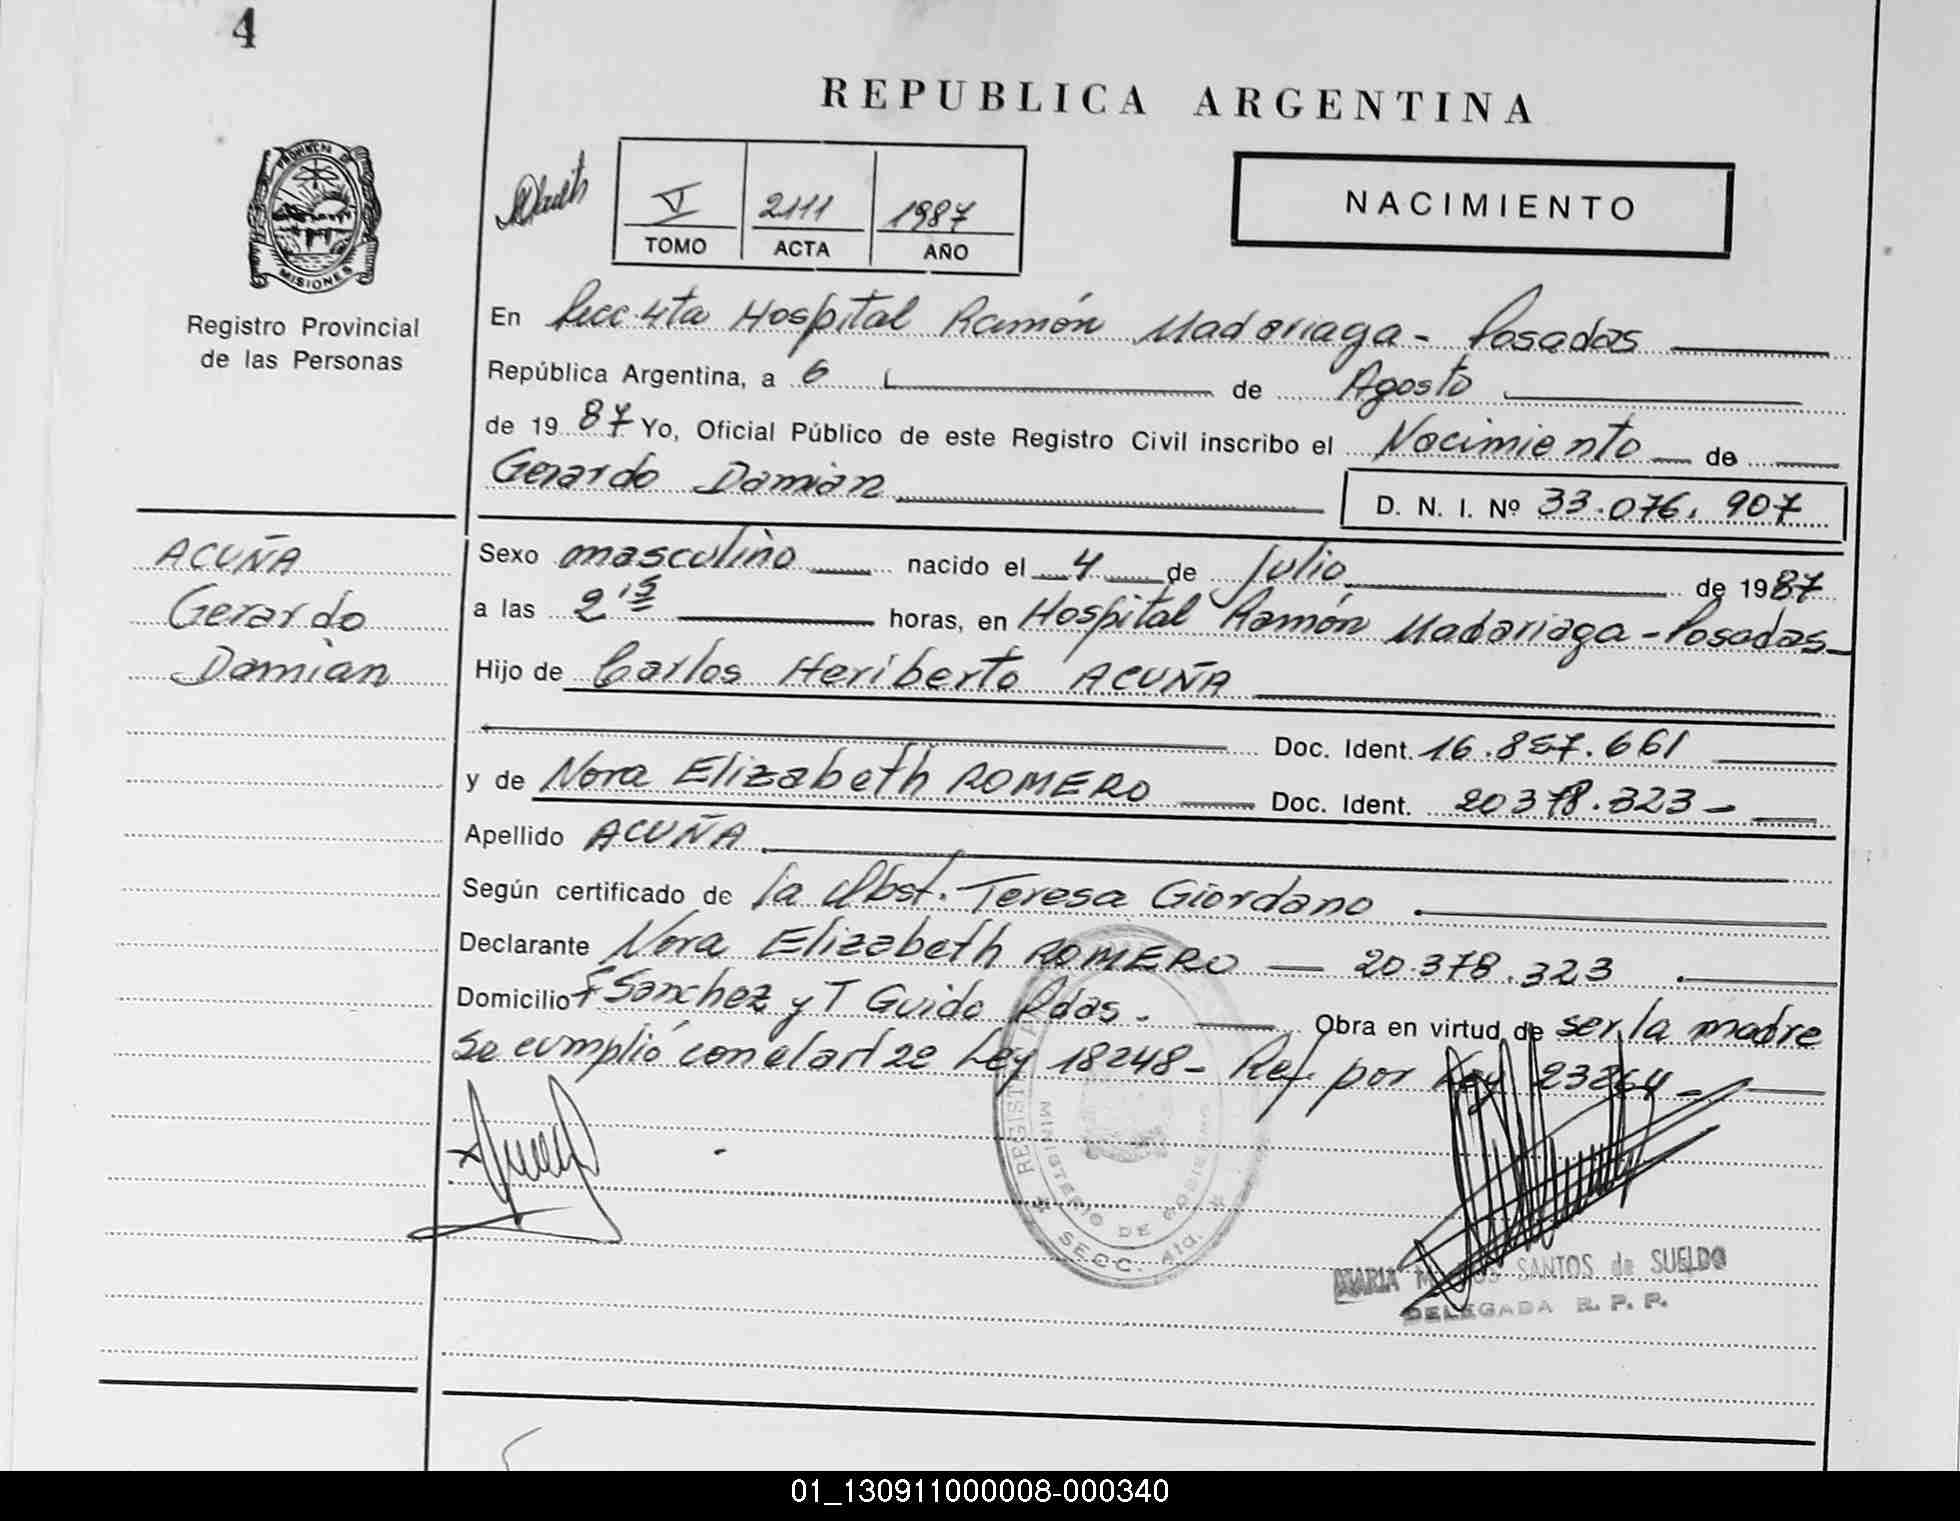 4
REPUBLICA ARGENTINA
PROVINCIA DE
MISIONES
Registro Provincial
de las Personas
V 2111 1987
TOMO ACTA AÑO
NACIMIENTO
En Secc. 4ta Hospital Ramón Madariaga - Posadas
República Argentina, a 6 de Agosto
de 1987 Yo, Oficial Público de este Registro Civil inscribo el Nacimiento de
Gerardo Damián
D. N. I. Nº 33.076.907
ACUÑA
Gerardo
Damián
Sexo masculino nacido el 4 de Julio de 1987
a las 2 15 horas, en Hospital Ramón Madariaga - Posadas
Hijo de Carlos Heriberto ACUÑA
Doc. Ident. 16.857.661
y de Nora Elizabeth ROMERO Doc. Ident. 20378.323 -
Apellido ACUÑA
Según certificado de la Obst. Teresa Giordano
Declarante Nora Elizabeth ROMERO — 20.378.323
Domicilio F Sanchez y T Guido Pdas. Obra en virtud de ser la madre
Se cumplió con el art 2º Ley 18248 - Ref. por Ley 23264 -
REGISTR
MINISTERIO DE GOBIERNO
SECC. 4ta.
MARIA SANTOS de SUELDO
DELEGADA R. P. P.
01_130911000008-000340